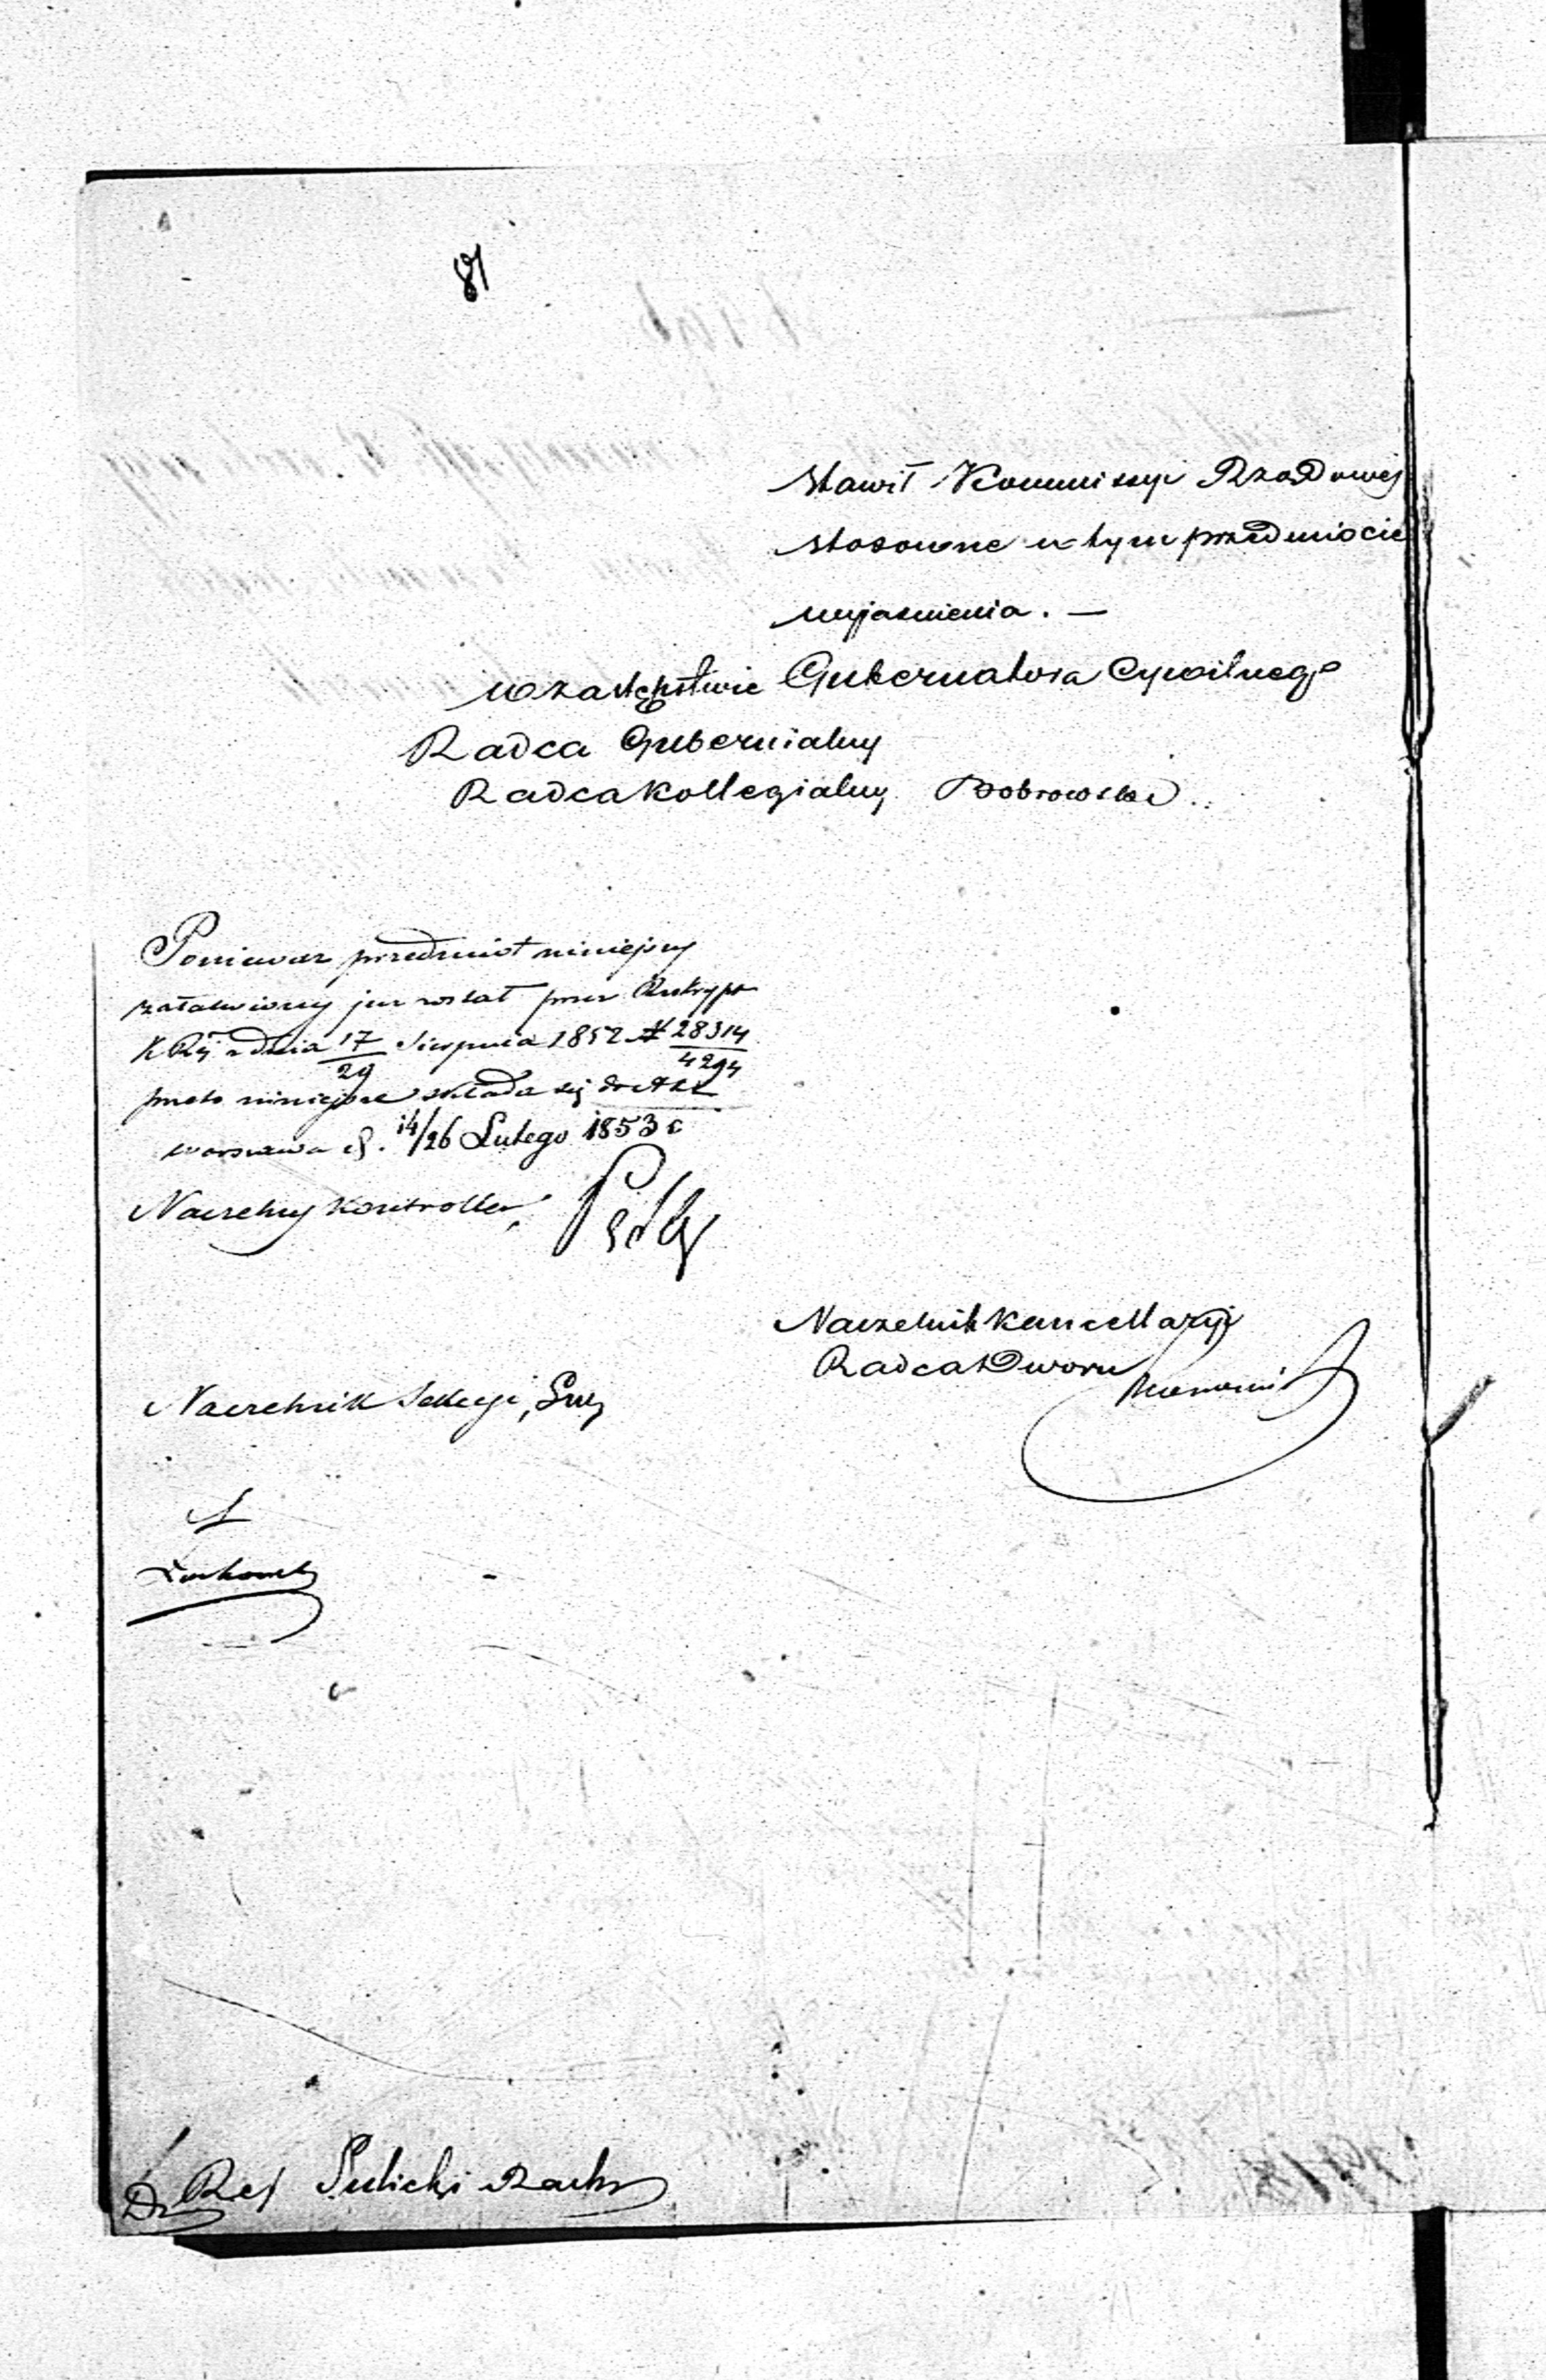 81
stawił Kommissyi Rządowej
stosowne w tym przedmiocie
wyjasnienia. —
w zastępstwie Gubernatora Cywilnego
Radca Gubernialny
Radca Kollegialny Bobrowski.
Poniewaz przedmiot niniejszy
załatwiony już został przez Reskrypt
z dnia 17/29 Sierpnia 1852 № 28314/4294
przeto niniejsze składa się do Akt
Warszawa d. 14/26 Lutego 1853 r
Naczelny Kontroller,
Naczelnik Kancellaryi
Radca Dworu
Naczelnik Sekcyi,